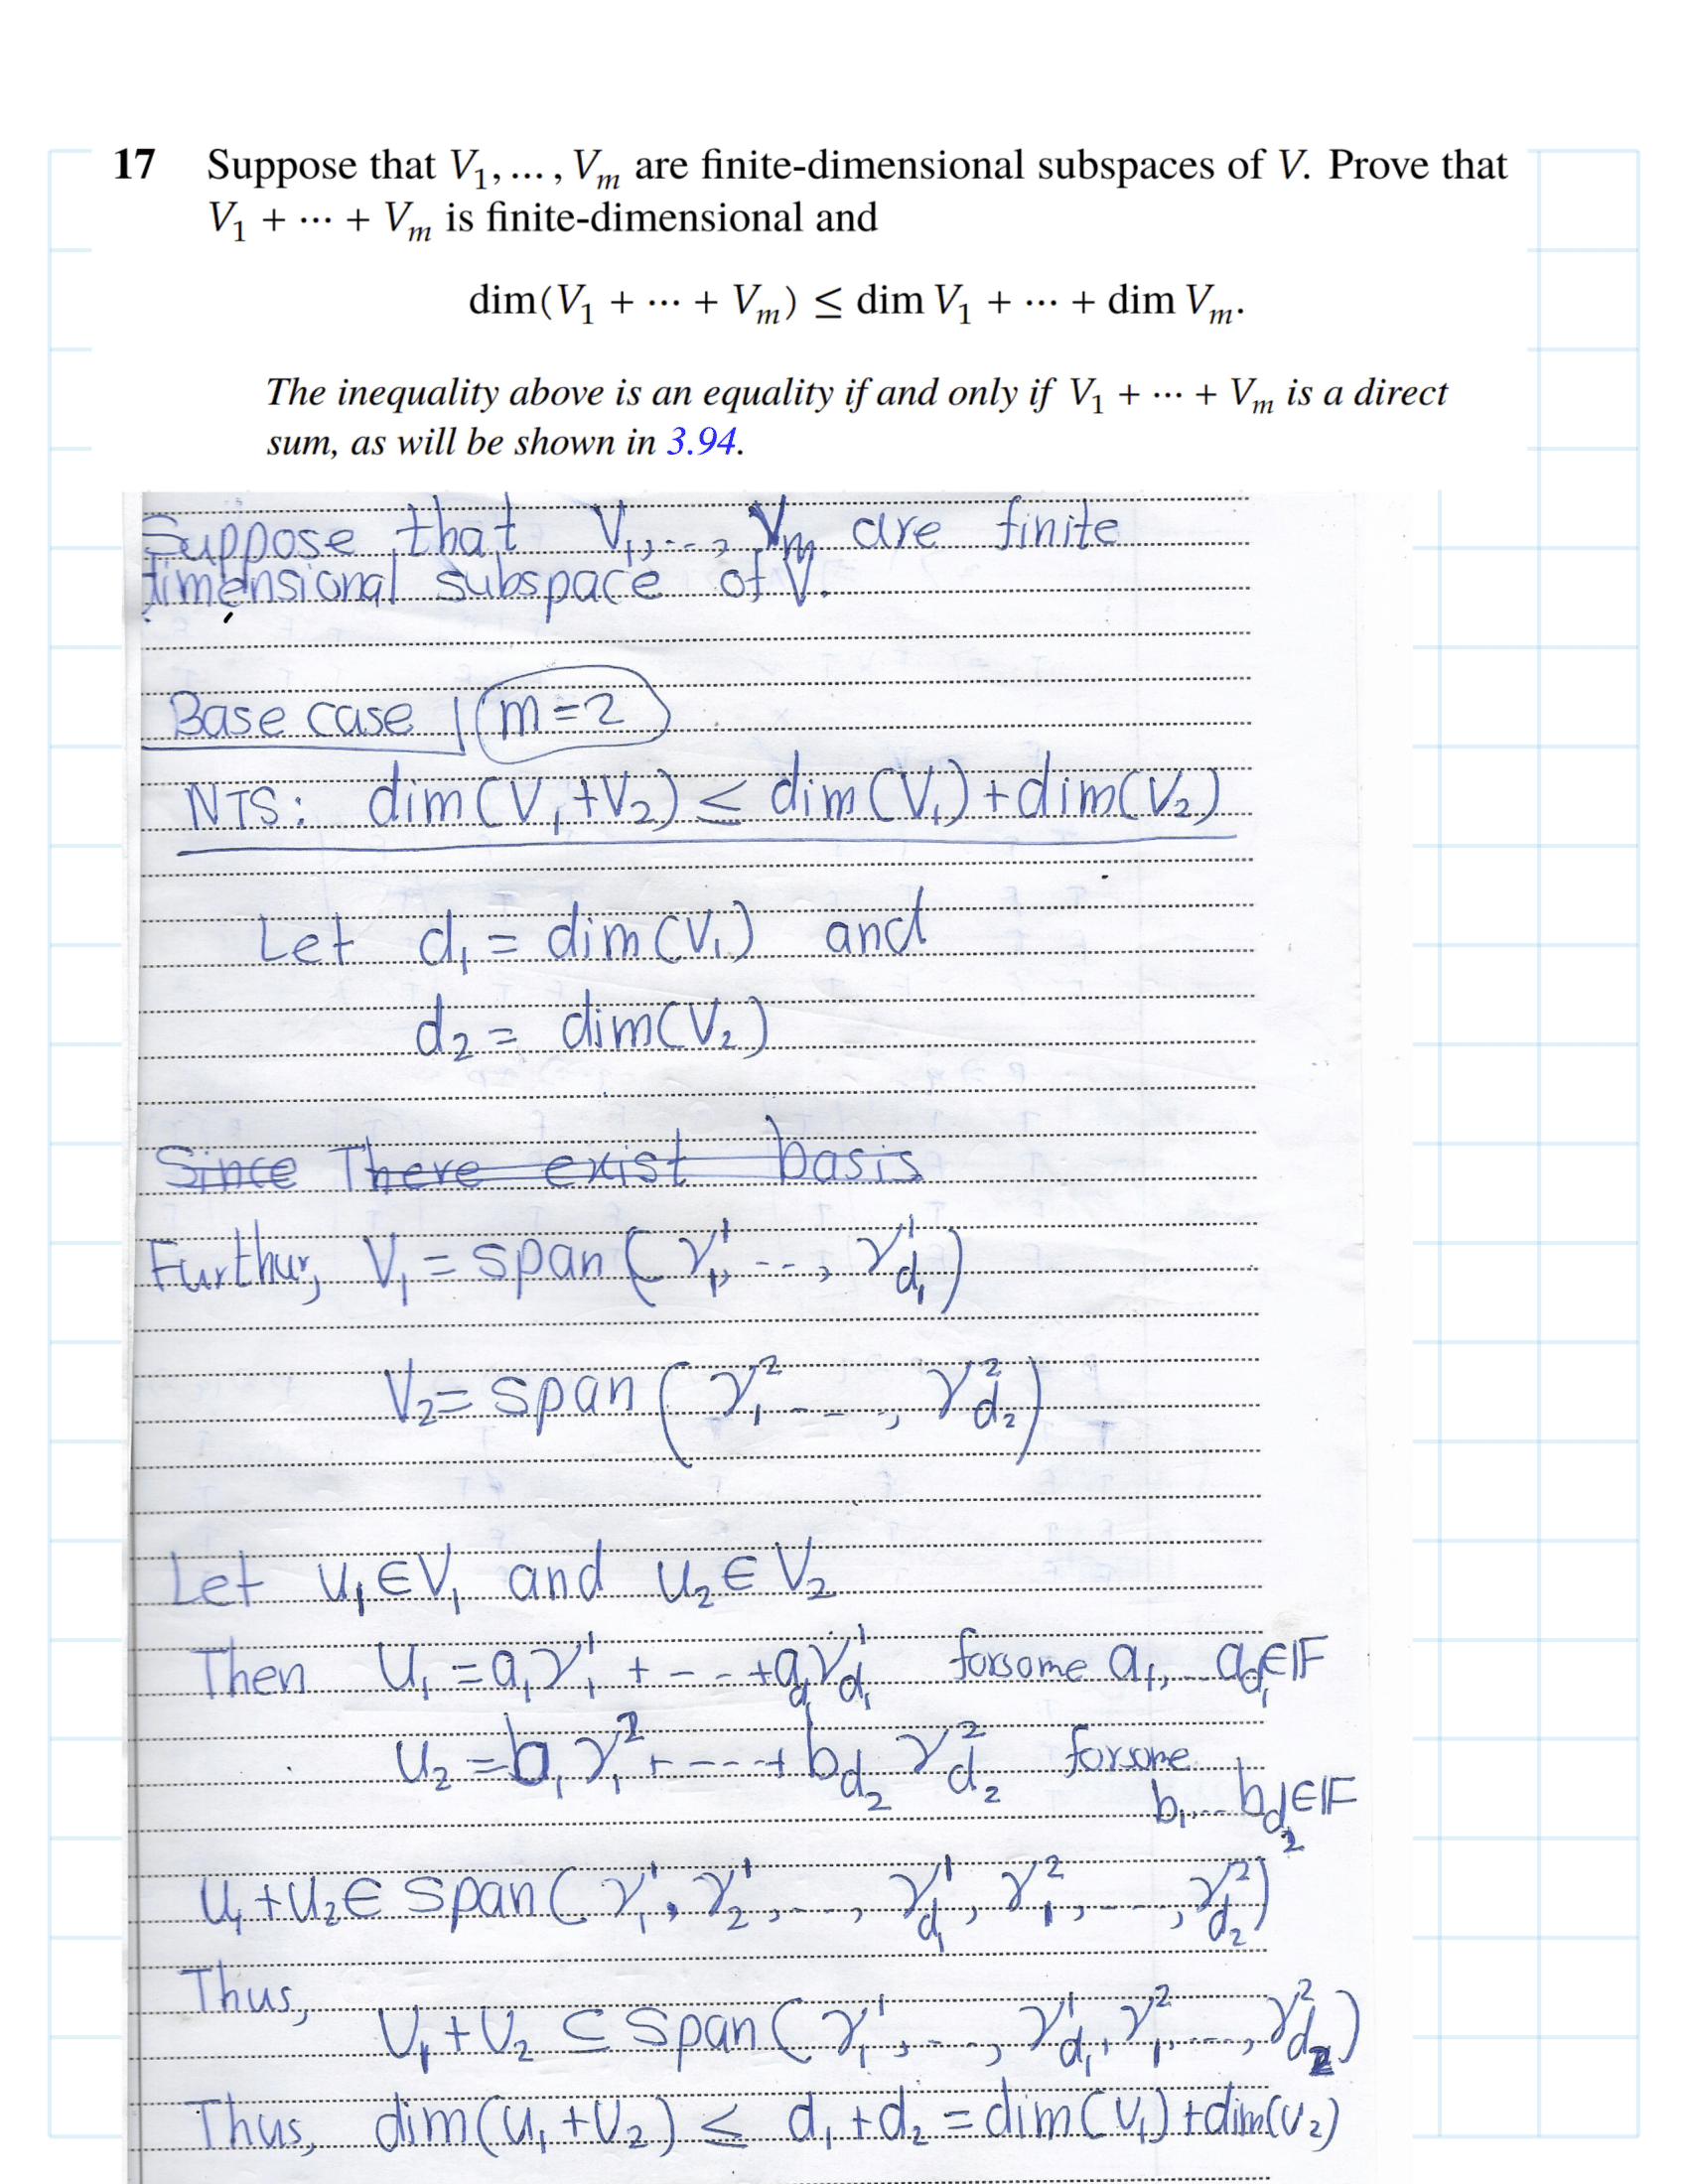 17 Suppose that V₁, … , Vₘ are finite-dimensional subspaces of V. Prove that
V₁ + ⋯ + Vₘ is finite-dimensional and
dim(V₁ + ⋯ + Vₘ) ≤ dim V₁ + ⋯ + dim Vₘ.
The inequality above is an equality if and only if V₁ + ⋯ + Vₘ is a direct
sum, as will be shown in 3.94.
Suppose that V₁, ..., Vₘ are finite
dimensional subspace of V.
Base case m=2
NTS: dim(V₁+V₂) ≤ dim(V₁)+dim(V₂)
Let d₁ = dim(V₁) and
d₂ = dim(V₂)
Since There exist basis
Furthur, V₁ = span(γ₁¹, ..., γ_{d₁}¹)
V₂ = span(γ₁² ..., γ_{d₂}²)
Let u₁ ∈ V₁ and u₂ ∈ V₂
Then u₁ = a₁γ₁¹ + ... + a_{d₁}γ_{d₁}¹ for some a₁, ... a_{d₁} ∈ 𝔽
u₂ = b₁γ₁² + ... + b_{d₂}γ_{d₂}² for some
b₁ ... b_{d₂} ∈ 𝔽
u₁+u₂ ∈ span(γ₁¹, γ₂¹, ..., γ_{d₁}¹, γ₁², ..., γ_{d₂}²)
Thus,
U₁+U₂ ⊆ span(γ₁¹, ..., γ_{d₁}¹, γ₁², ..., γ_{d₂}²)
Thus, dim(U₁+U₂) ≤ d₁+d₂ = dim(V₁)+dim(V₂)